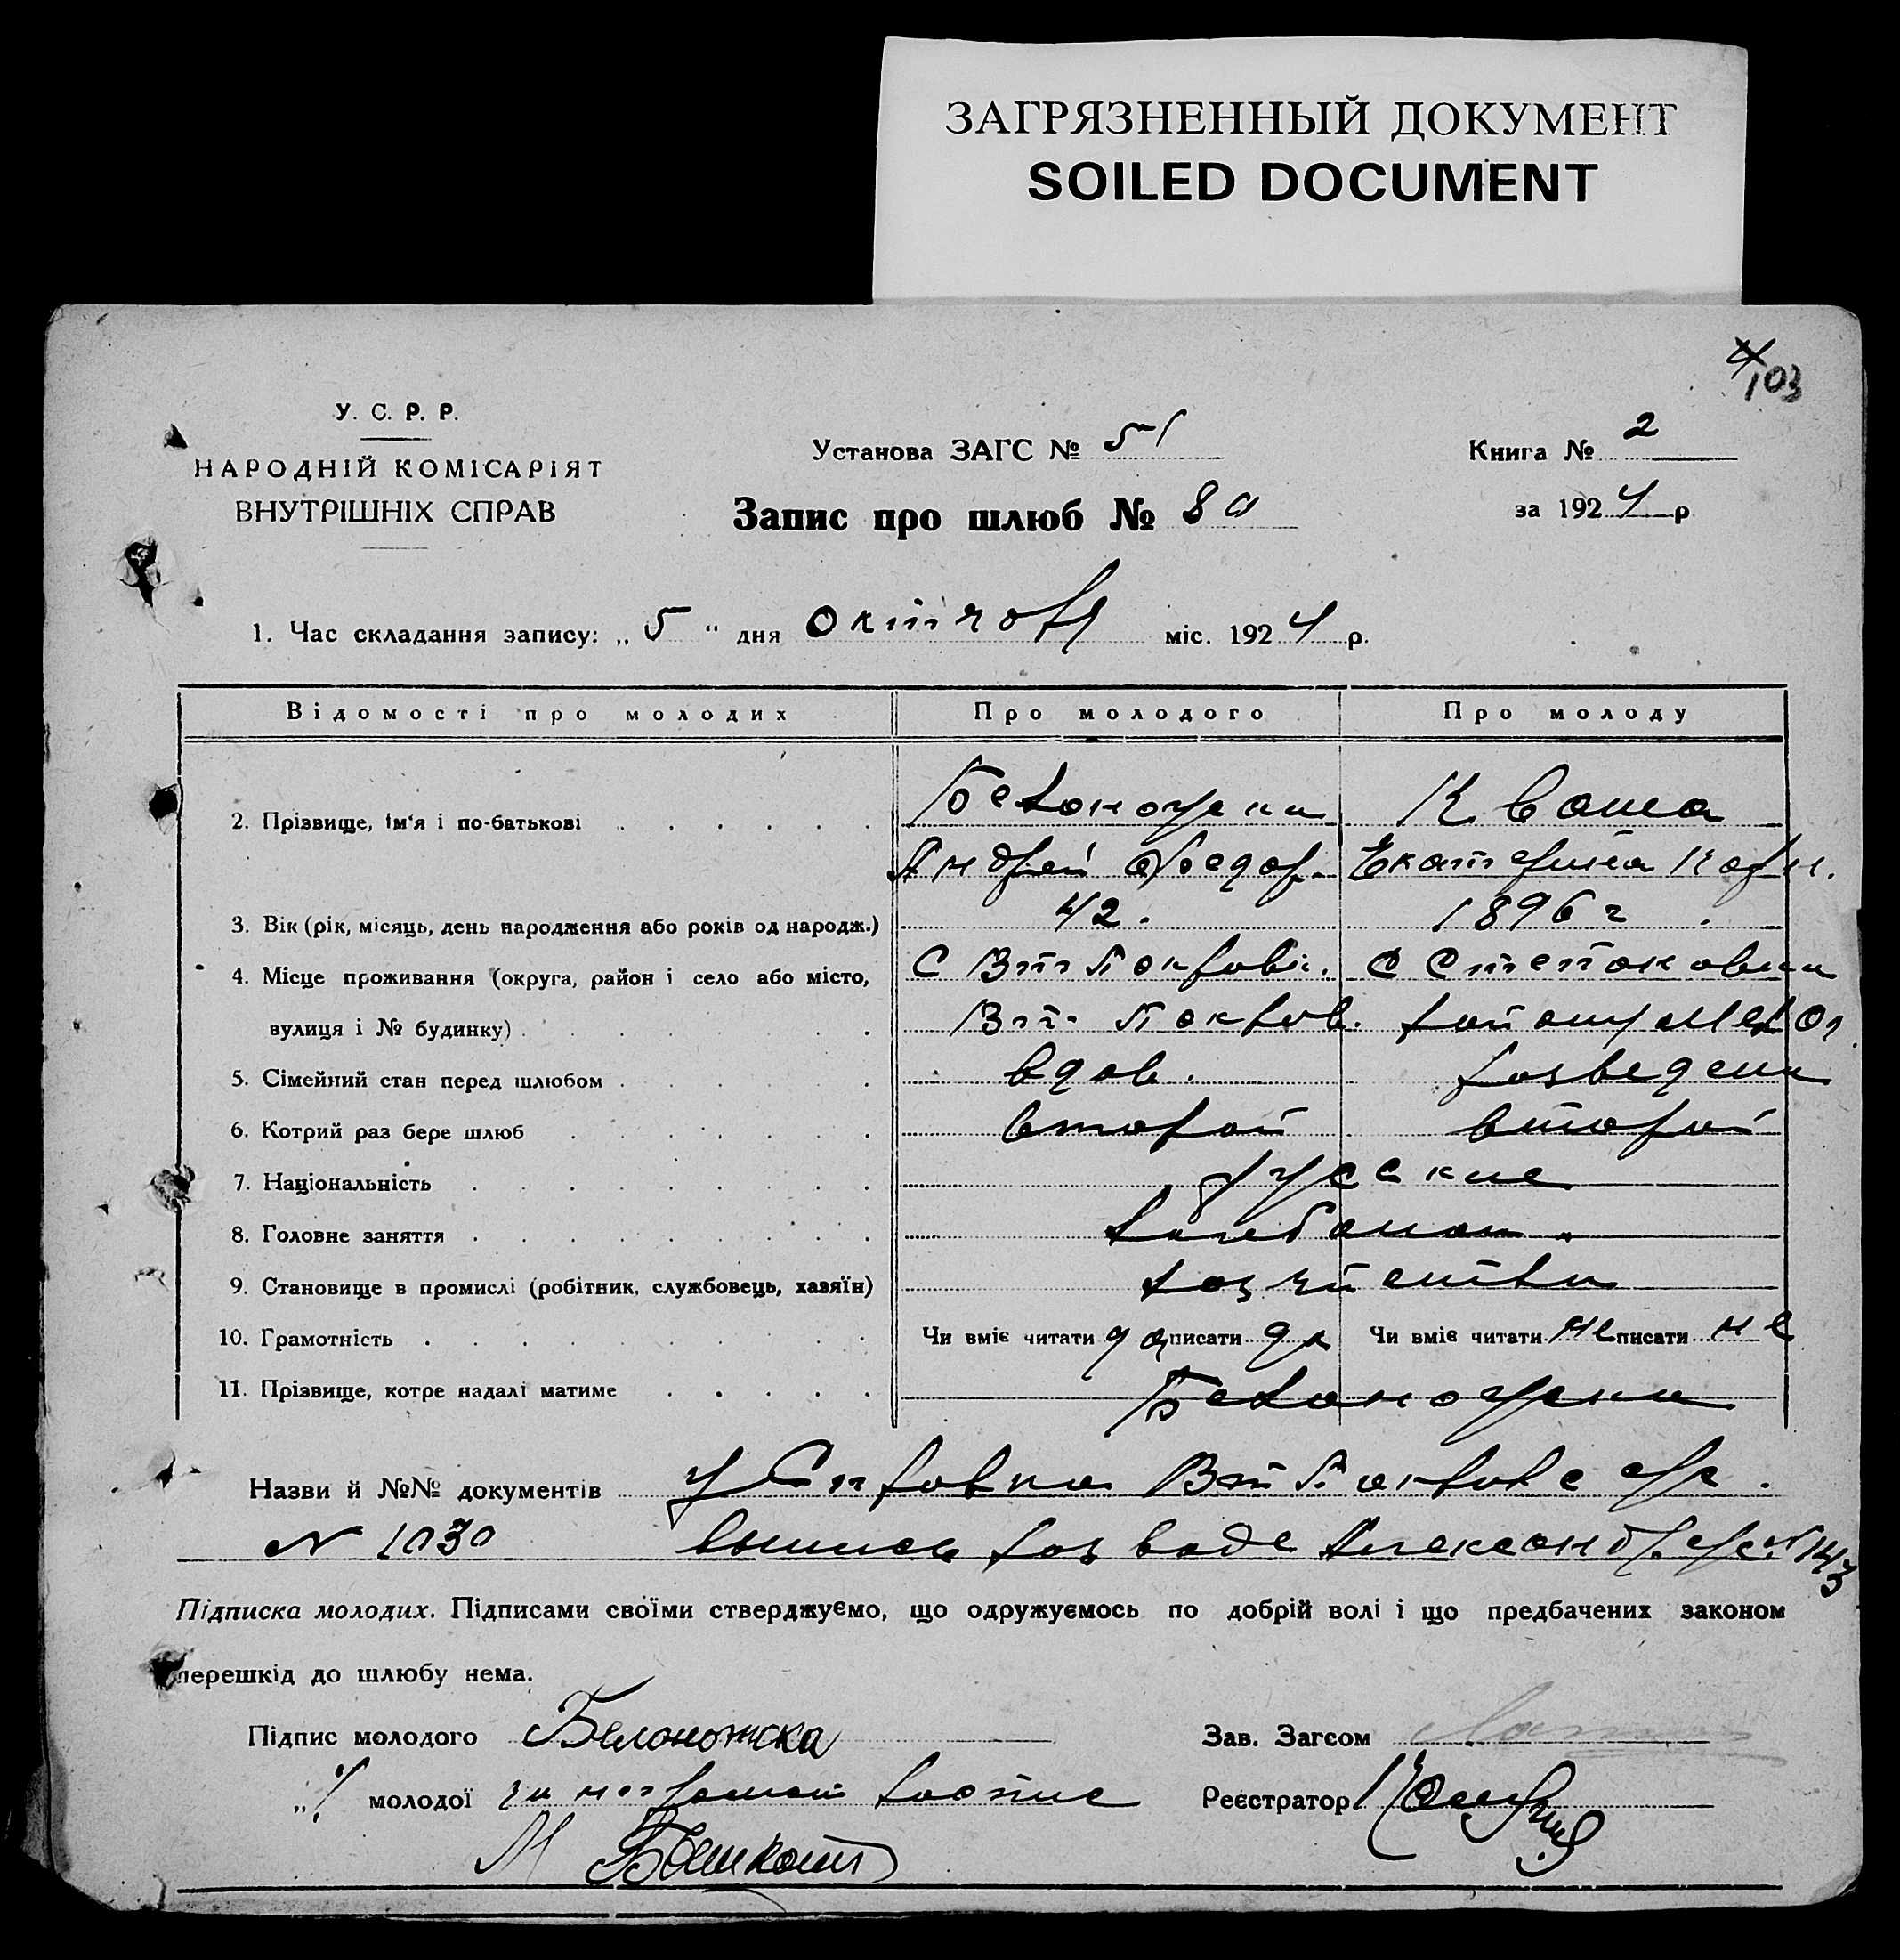 ЗАГРЯЗНЕННЫЙ ДОКУМЕНТ
SOILED DOCUMENT
103
У. С. Р. Р.
НАРОДНІЙ КОМІСАРІЯТ
ВНУТРІШНІХ СПРАВ
Установа ЗАГС № 51
Запис про шлюб № 80
Книга № 2
за 1924 р
1. Час складання запису: „ 5 “ дня октября міс. 1924 р.
Відомості про молодих Про молодого Про молоду
2. Прізвище, ім‘я і по-батькові Белоножка Кваша
Андрей Федор. Екатерина Корн.
3. Вік (рік, місяць, день народження або років од народж.) 42. 1896 г.
4. Місце проживання (округа, район і село або місто, с Вт Покровк. с Степановки
вулиця і № будинку) Вт. Покров.
5. Сімейний стан перед шлюбом вдов. разведена
6. Котрий раз бере шлюб второй второй
7. Національність русские
8. Головне заняття хлебопаш.
9. Становище в промислі (робітник, службовець, хазяїн) хозяйства
10. Грамотність Чи вміє читати да писати да Чи вміє читати не писати не
11. Прізвище, котре надалі матиме Белоножка
Назви й №№ документів Справка Вт Покров с/с.
N 1030 выпись развода Александр. с/с N 143
Підписка молодих. Підписами своїми стверджуємо, що одружуємось по добрій волі і що предбачених законом
перешкід до шлюбу нема.
Підпис молодого Белоножка Зав. Загсом
„ молодої за неграмот. Реєстратор